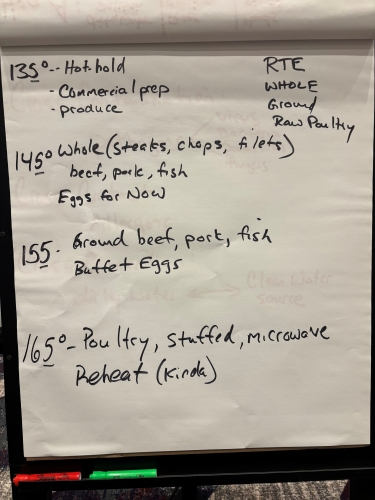 135° - Hot hold
- Commercial prep
- produce
RTE
WHOLE
Ground
Raw Poultry
145° Whole (steaks, chops, filets)
beef, pork, fish
Eggs for Now
155 - Ground beef, pork, fish
Buffet Eggs
165° - Poultry, stuffed, microwave
Reheat (Kinda)
Clean Water
source